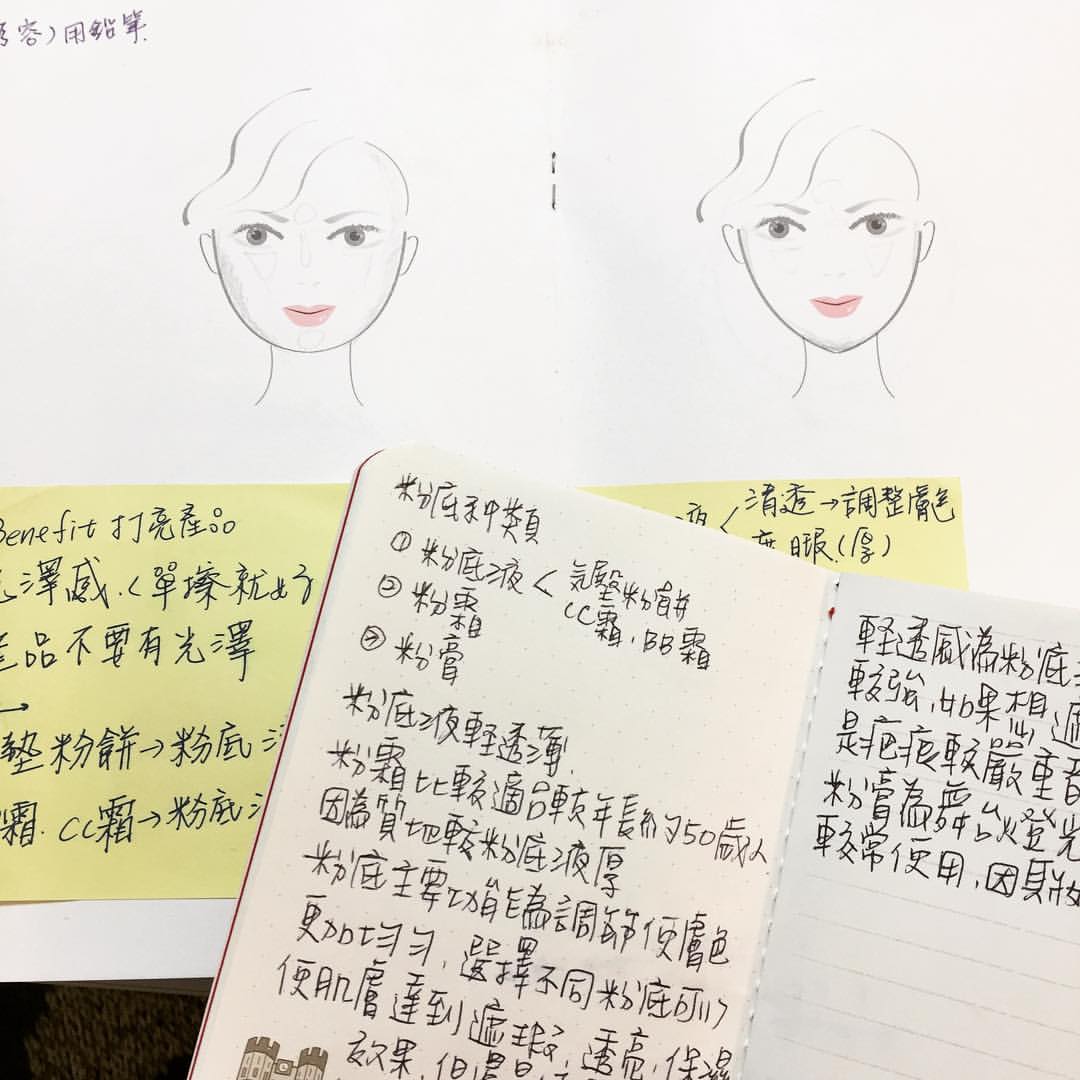 容)用鉛筆
Benefit 打亮產品
澤感.(單擦就好
品不要有光澤
→
墊粉餅→粉底
霜. CC霜→粉底
液<清透→調整膚色
遮瑕(厚)
粉底種類
① 粉底液<氣墊粉餅
CC霜,BB霜
② 粉霜
③ 粉膏
粉底液輕透薄,
粉霜比較適品較年長約50歲以
因為質地較粉底液厚
粉底主要功能為調節使膚色
更加均勻,選擇不同粉底可以
使肌膚達到遮瑕、透亮、保濕
效果,但是
輕透感為粉底
較強,如果想遮
是疤痕較嚴重
粉膏為舞台燈光
較常使用,因具妝